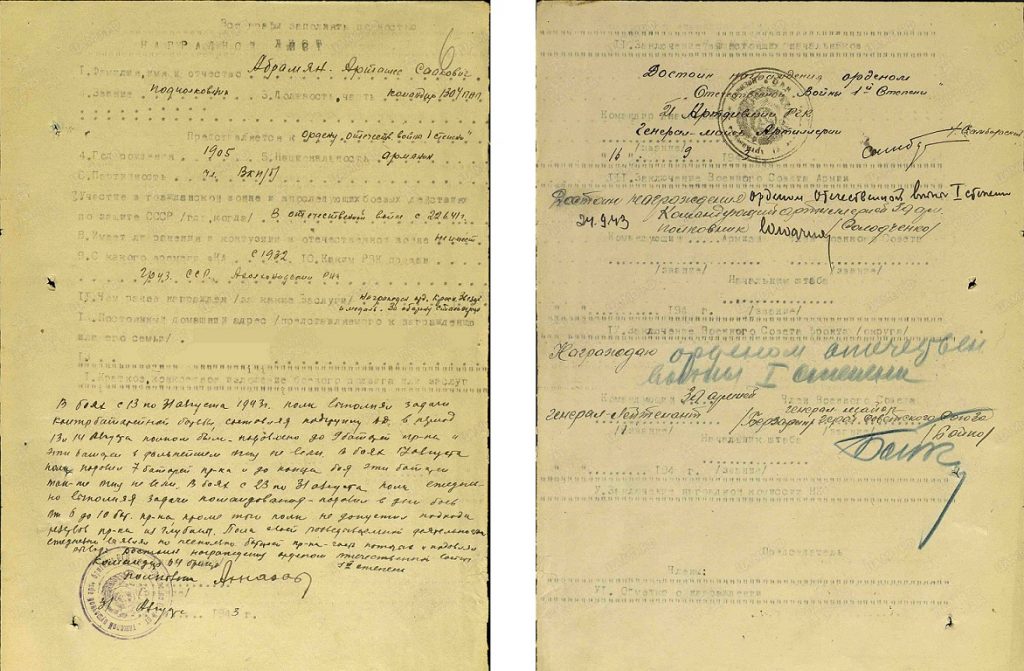 Все графы заполнять полностью
НАГРАДНОЙ ЛИСТ
6
1. Фамилия, имя и отчество Абрамян Арташес
Звание Подполковник 3. Должность, часть командир 1304 ПАП
Представляется к ордену „Отечеств. война I степени"
4. Год рождения 1905 5. Национальность армянин
6. Партийность чл. ВКП(б)
Участие в гражданской войне и последующих боевых действиях
по защите СССР /где, когда/ В отечественной войне с 22.6.41 г.
8. Имеет ли ранения и контузии в отечественной войне не имеет
9. С какого времени в КА с 1932 10. Каким РВК призван
Груз. ССР РВК
11. Чем ранее награжден /за какие заслуги/ Награжден орд. Красн. Звезда
и медаль „За оборону Сталинграда
Постоянный домашний адрес /представляемого к награждению
и адрес семьи/
1. Краткое, конкретное изложение боевого подвига или заслуг
В боях с 13 по 31 августа 1943 г. полк выполнял задачи
контрбатарейной борьбы, в период
13 и 14 августа полком было подавлено до 9 батарей пр-ка и
эти батареи в дальнейшем огня не вели. В боях 17 августа
полк подавил 7 батарей пр-ка и до конца боя эти батареи
так-же огня не вели. В боях с 23 по 31 августа полк ежедне-
вно выполнял задачи командования - подавил в дни боев
от 6 до 10 бат. пр-ка, кроме того полк не допустил подхода
резервов пр-ка из глубины.
ежедневно по несколько батарей пр-ка
достоин награждения орденом отечественной войны
1й степени
Командир
полковник
31 Август 1943 г.
II. Заключение вышестоящих начальников
Достоин награждения орденом
„Отечественной Войны 1й Степени"
Генерал-майор Артиллерии
/Самборский/
16 9
III. Заключение Военного Совета Армии
Достоин награждения орденом отечественной войны I степени
24.9.43 Командующий артиллерией 37 арм.
полковник /Солодченко/
Командующий Армией Члены Военного Совета
/звание/ /звание/
Начальник штаба
194 г. /звание/
IV. Заключение Военного Совета фронта /округа/
Награждаю орденом отечествен
войны I степени
Командующий 37 армией Члены Военного Совета
генерал-лейтенант генерал-майор
/звание/ /звание/
/Бойко/
Начальник штаба
194 г. /звание/
V. Заключение наградной комиссии НКО
Председатель
Члены:
VI. Отметка о награждении